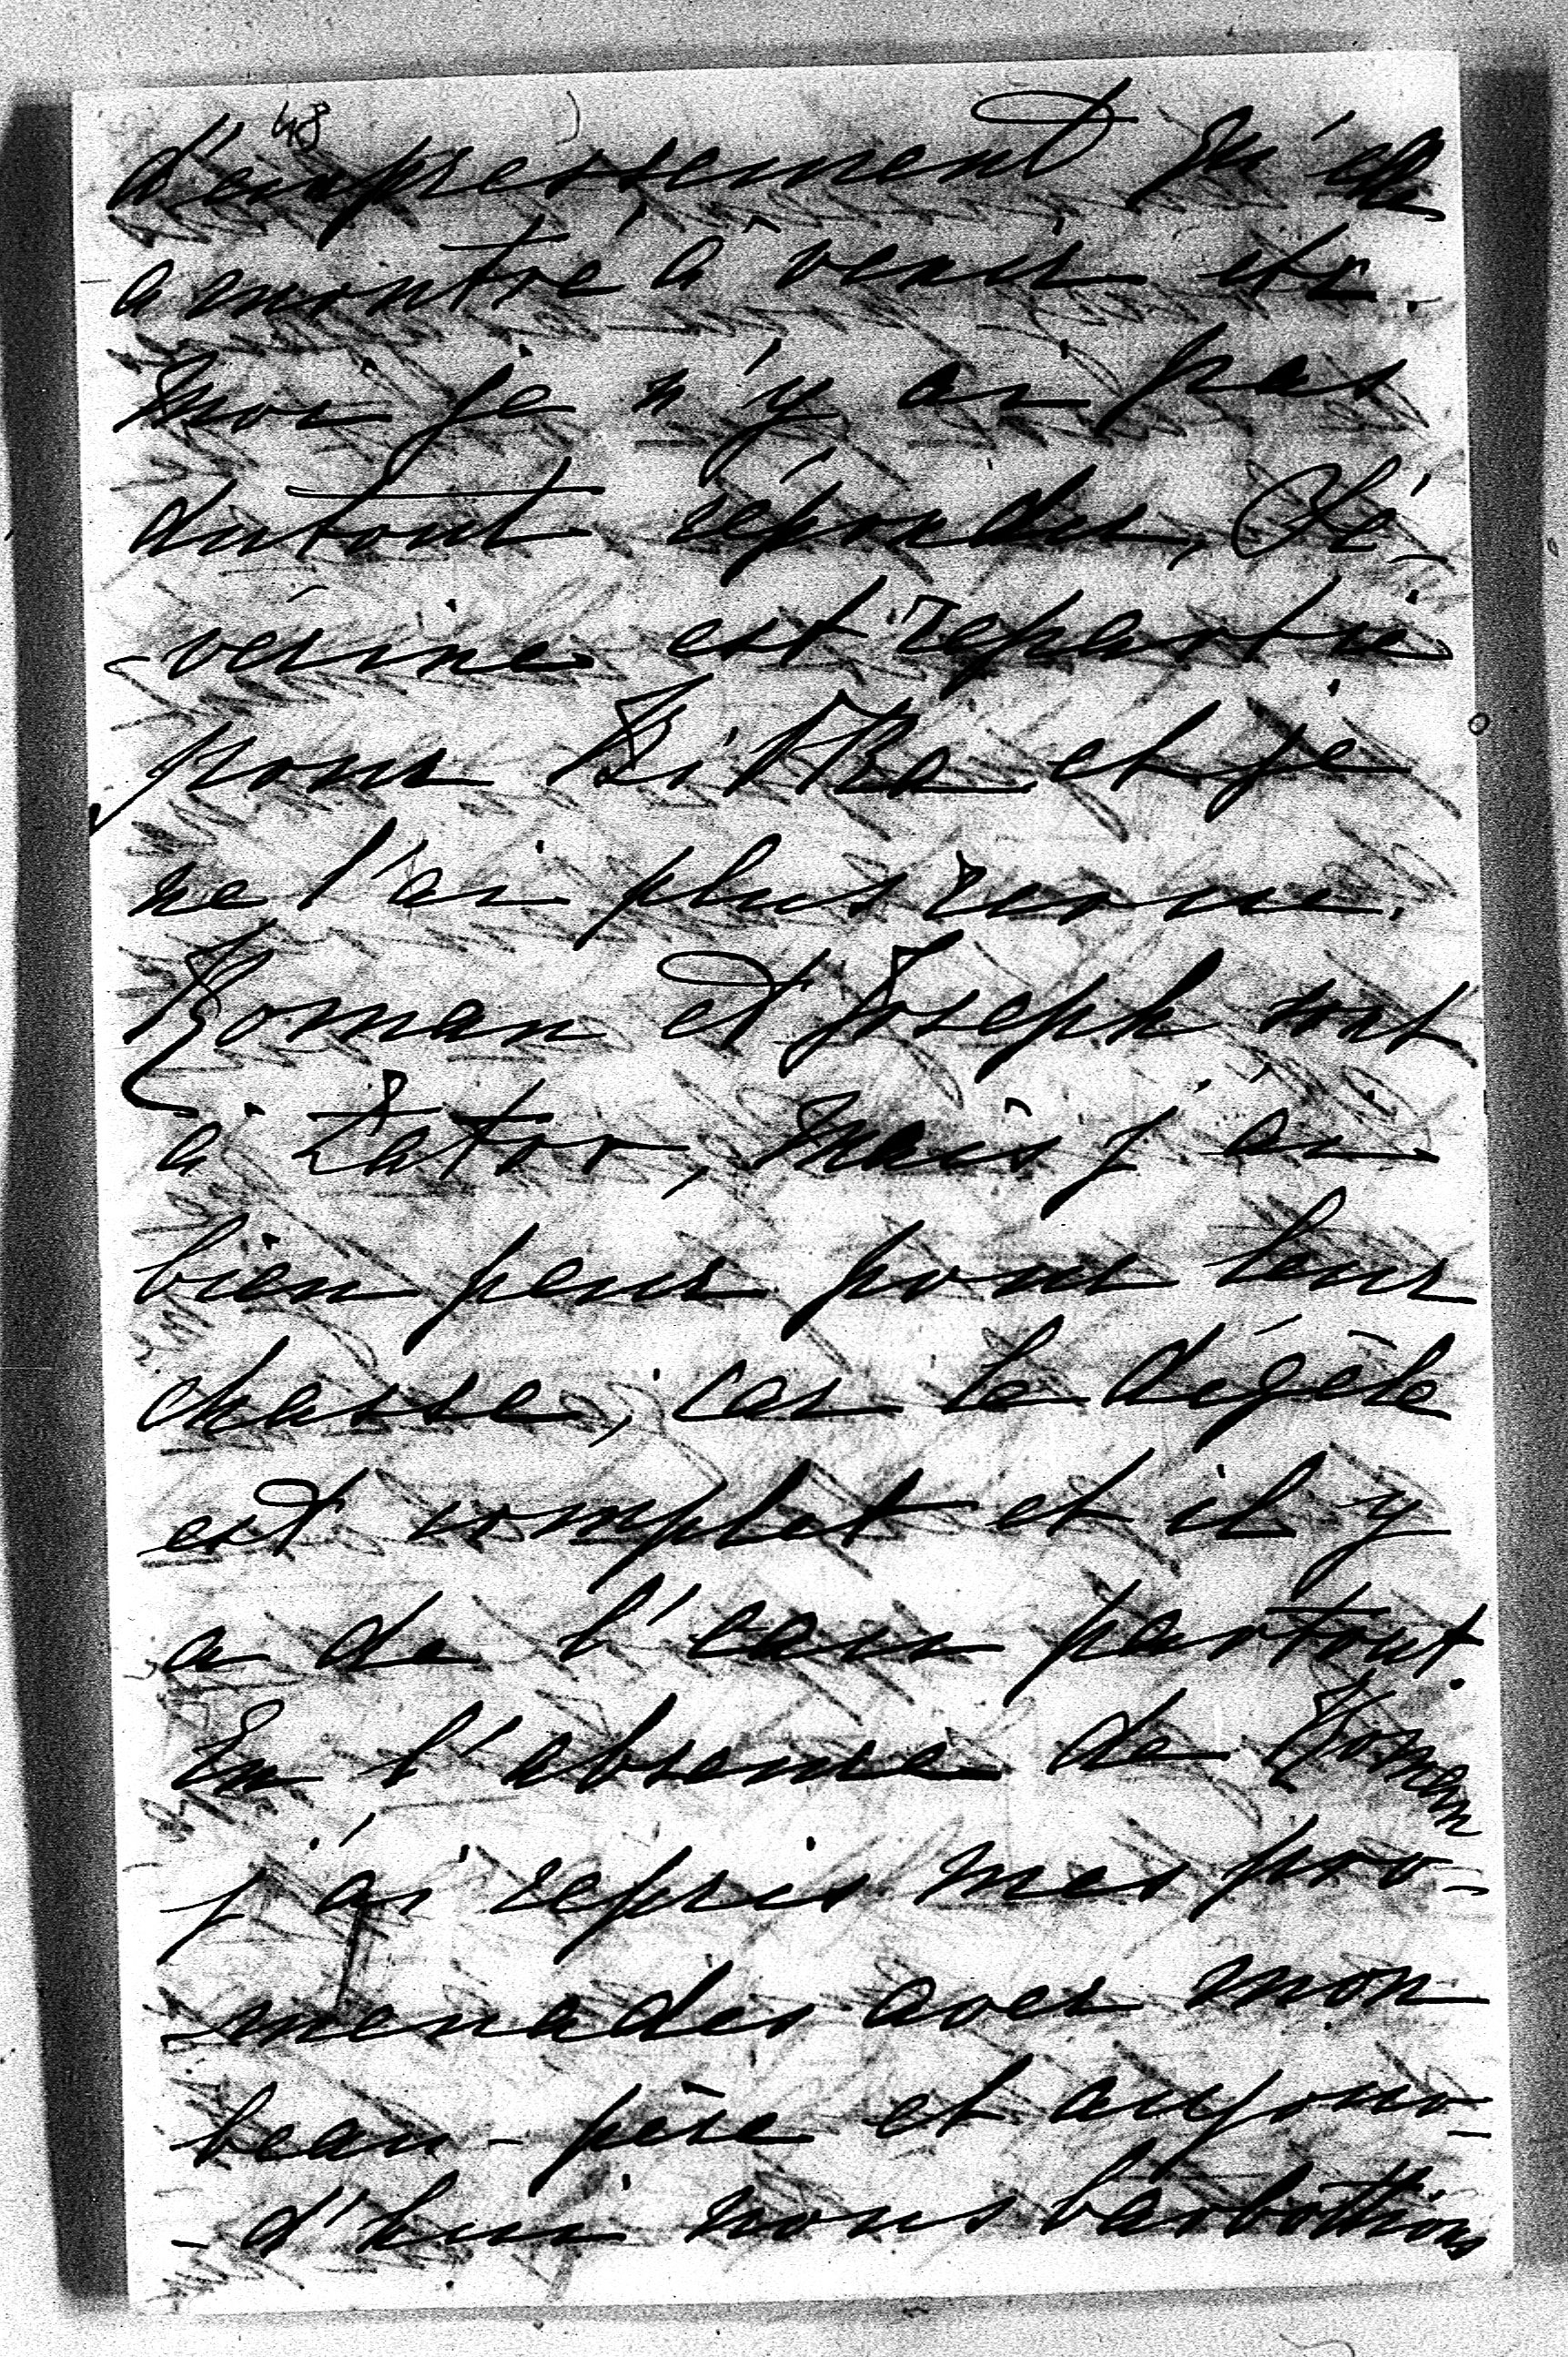 48
d'empressement qu'elle
a montré à venir etc.
Moi je n'y ai pas
dutout répondu, Sé-
-vérine est repartie
pour Filka et je
ne l'ai plus revue.
Roman et Joseph sont
à Zator, mais j'ai
bien peur pour leur
chasse, car le dégèle
est complet et il y
a de l'eau partout.
En l'absence de Roman
j'ai repris mes pro-
-menades avec mon
beau-père et aujour-
-d'hui nous barbottions